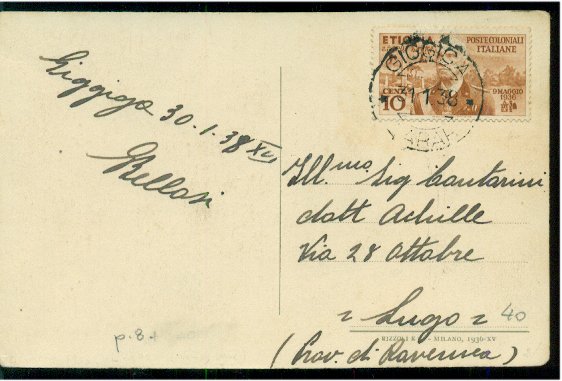 ETIOPIA
POSTE COLONIALI
ITALIANE
CENT 10
9 MAGGIO
1936
GIGGIGA
1.38
HARAR
Giggiga 30.1.38 XVI
Bellasi
Ill.mo Sig Cantarini
dott Achille
Via 28 Ottobre
= Lugo =
40
(Prov. di Ravenna)
RIZZOLI & - MILANO, 1936-XV
p. 8.